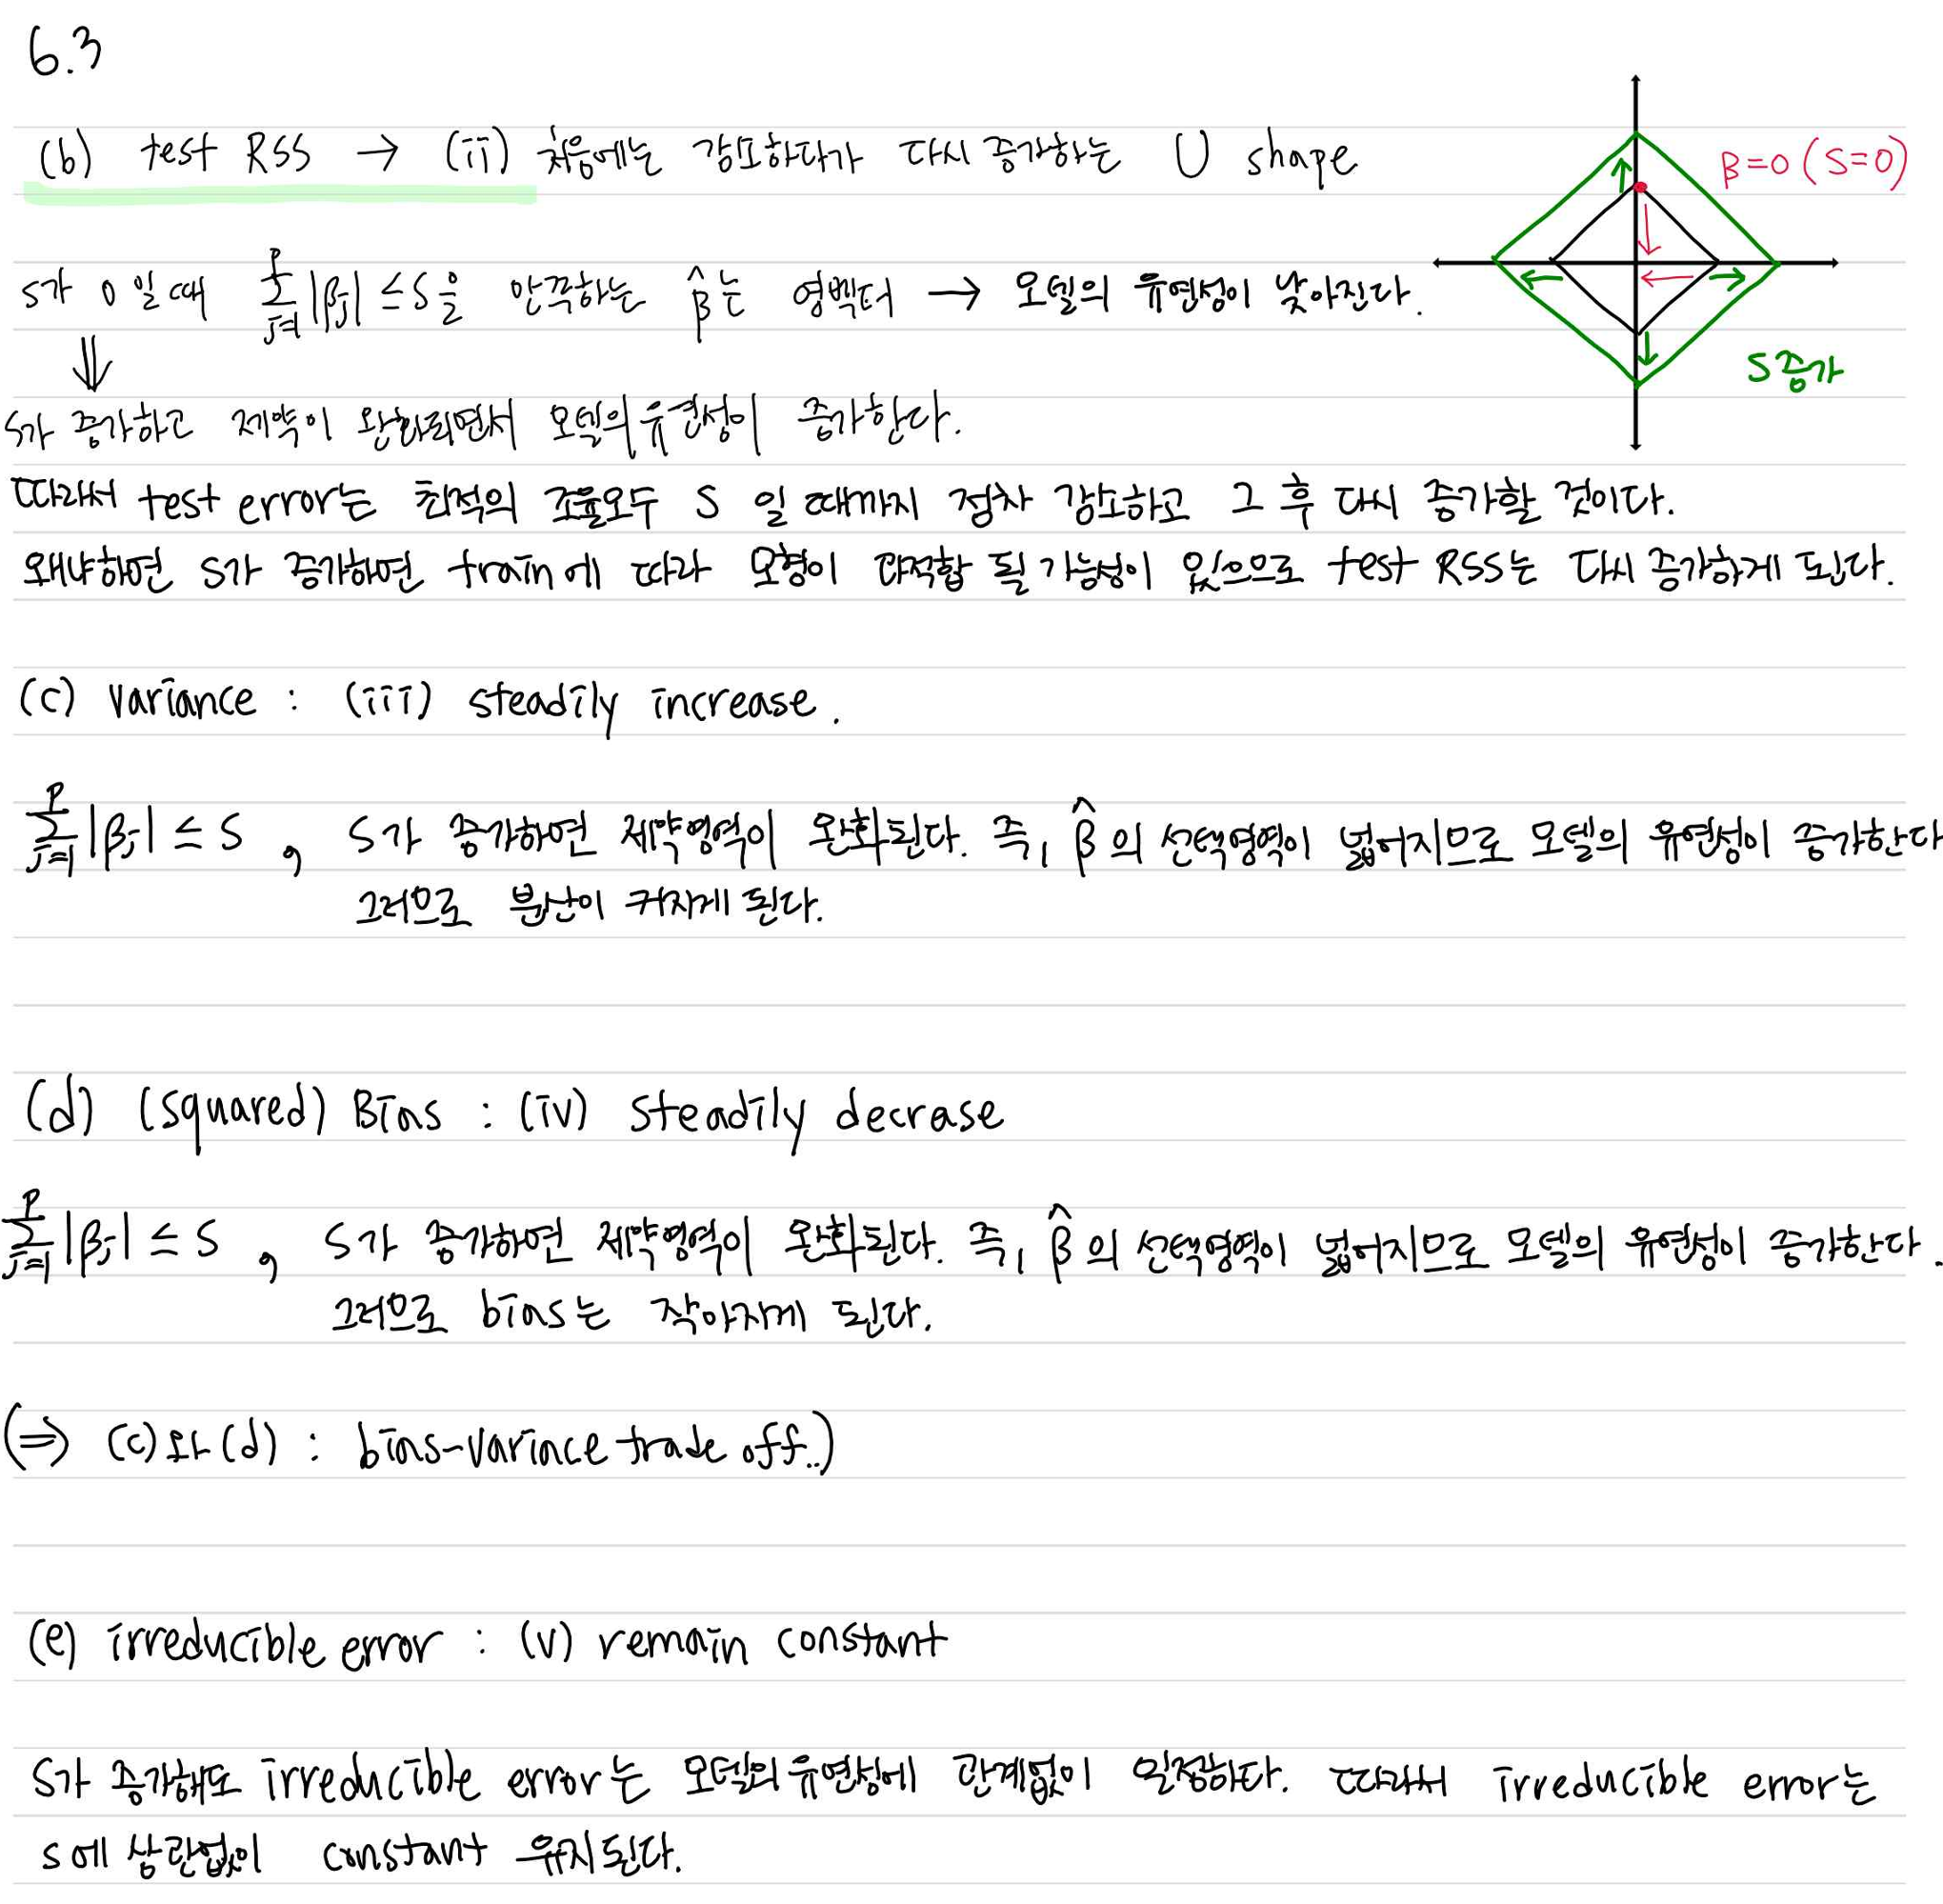 6.3
(b) test RSS → (ii) 처음에는 감소하다가 다시 증가하는 U shape
β=0 (S=0)
S가 0 일 때 \sum_{j=1}^{p} |βj| ≤ S 을 만족하는 β̂는 영벡터 → 모델의 유연성이 낮아진다.
S증가
⇓
S가 증가하고 제약이 완화되면서 모델의 유연성이 증가한다.
따라서 test error는 최적의 조율모수 S 일 때까지 점차 감소하고 그 후 다시 증가할 것이다.
왜냐하면 S가 증가하면 train에 따라 모형이 과적합 될 가능성이 있으므로 test RSS는 다시 증가하게 된다.
(c) variance : (iii) steadily increase.
\sum_{j=1}^{p} |βj| ≤ S , S가 증가하면 제약영역이 완화된다. 즉, β̂의 선택영역이 넓어지므로 모델의 유연성이 증가한다
그러므로 분산이 커지게 된다.
(d) (squared) Bias : (iv) steadily decrease
\sum_{j=1}^{p} |βj| ≤ S , S가 증가하면 제약영역이 완화된다. 즉, β̂의 선택영역이 넓어지므로 모델의 유연성이 증가한다.
그러므로 bias는 작아지게 된다.
(⇒ (c)와 (d) : bias-varince trade off..)
(e) irreducible error : (v) remain constant
S가 증가해도 irreducible error는 모델의 유연성에 관계없이 일정하다. 따라서 irreducible error는
S에 상관없이 constant 유지된다.